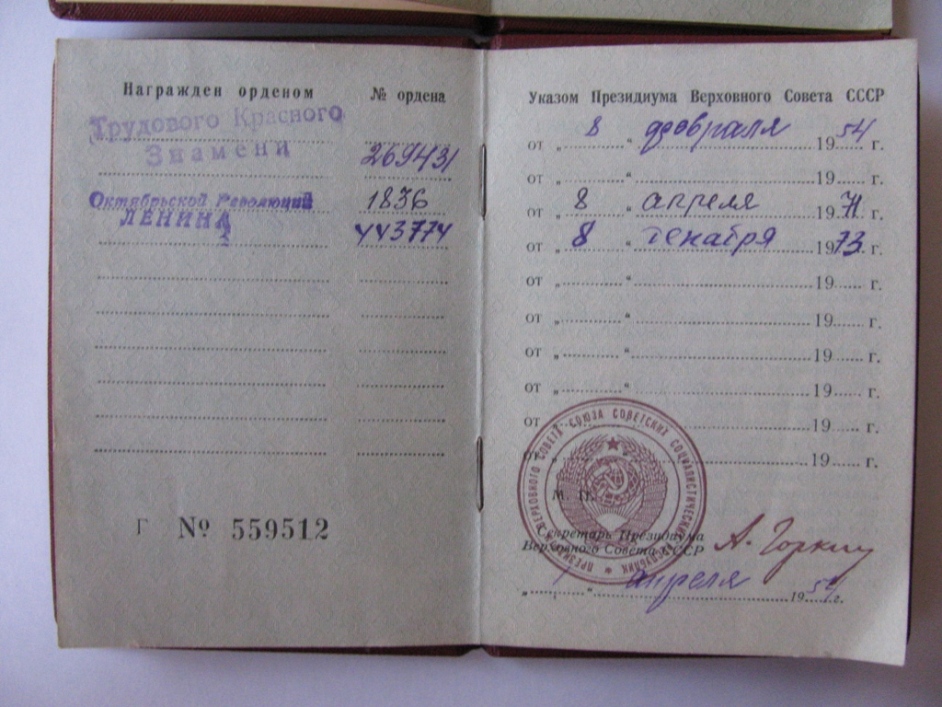 Награжден орденом № ордена
Трудового Красного
Знамени 269431
Октябрьской Революции 1836
ЛЕНИНА 443774
Г № 559512
Указом Президиума Верховного Совета СССР
от „ 8 “ февраля 1954 г.
от „ “ 19 г.
от „ 8 “ апреля 1971 г.
от „ 8 “ декабря 1973 г.
от „ “ 19 г.
от „ “ 19 г.
от „ “ 19 г.
от „ “ 19 г.
от „ “ 19 г.
от „ “ 19 г.
ПРЕЗИДИУМ ВЕРХОВНОГО СОВЕТА СОЮЗА СОВЕТСКИХ СОЦИАЛИСТИЧЕСКИХ РЕСПУБЛИК
М. П.
Секретарь Президиума
Верховного Совета СССР А. Горкин
„ 1 “ апреля 1954 г.